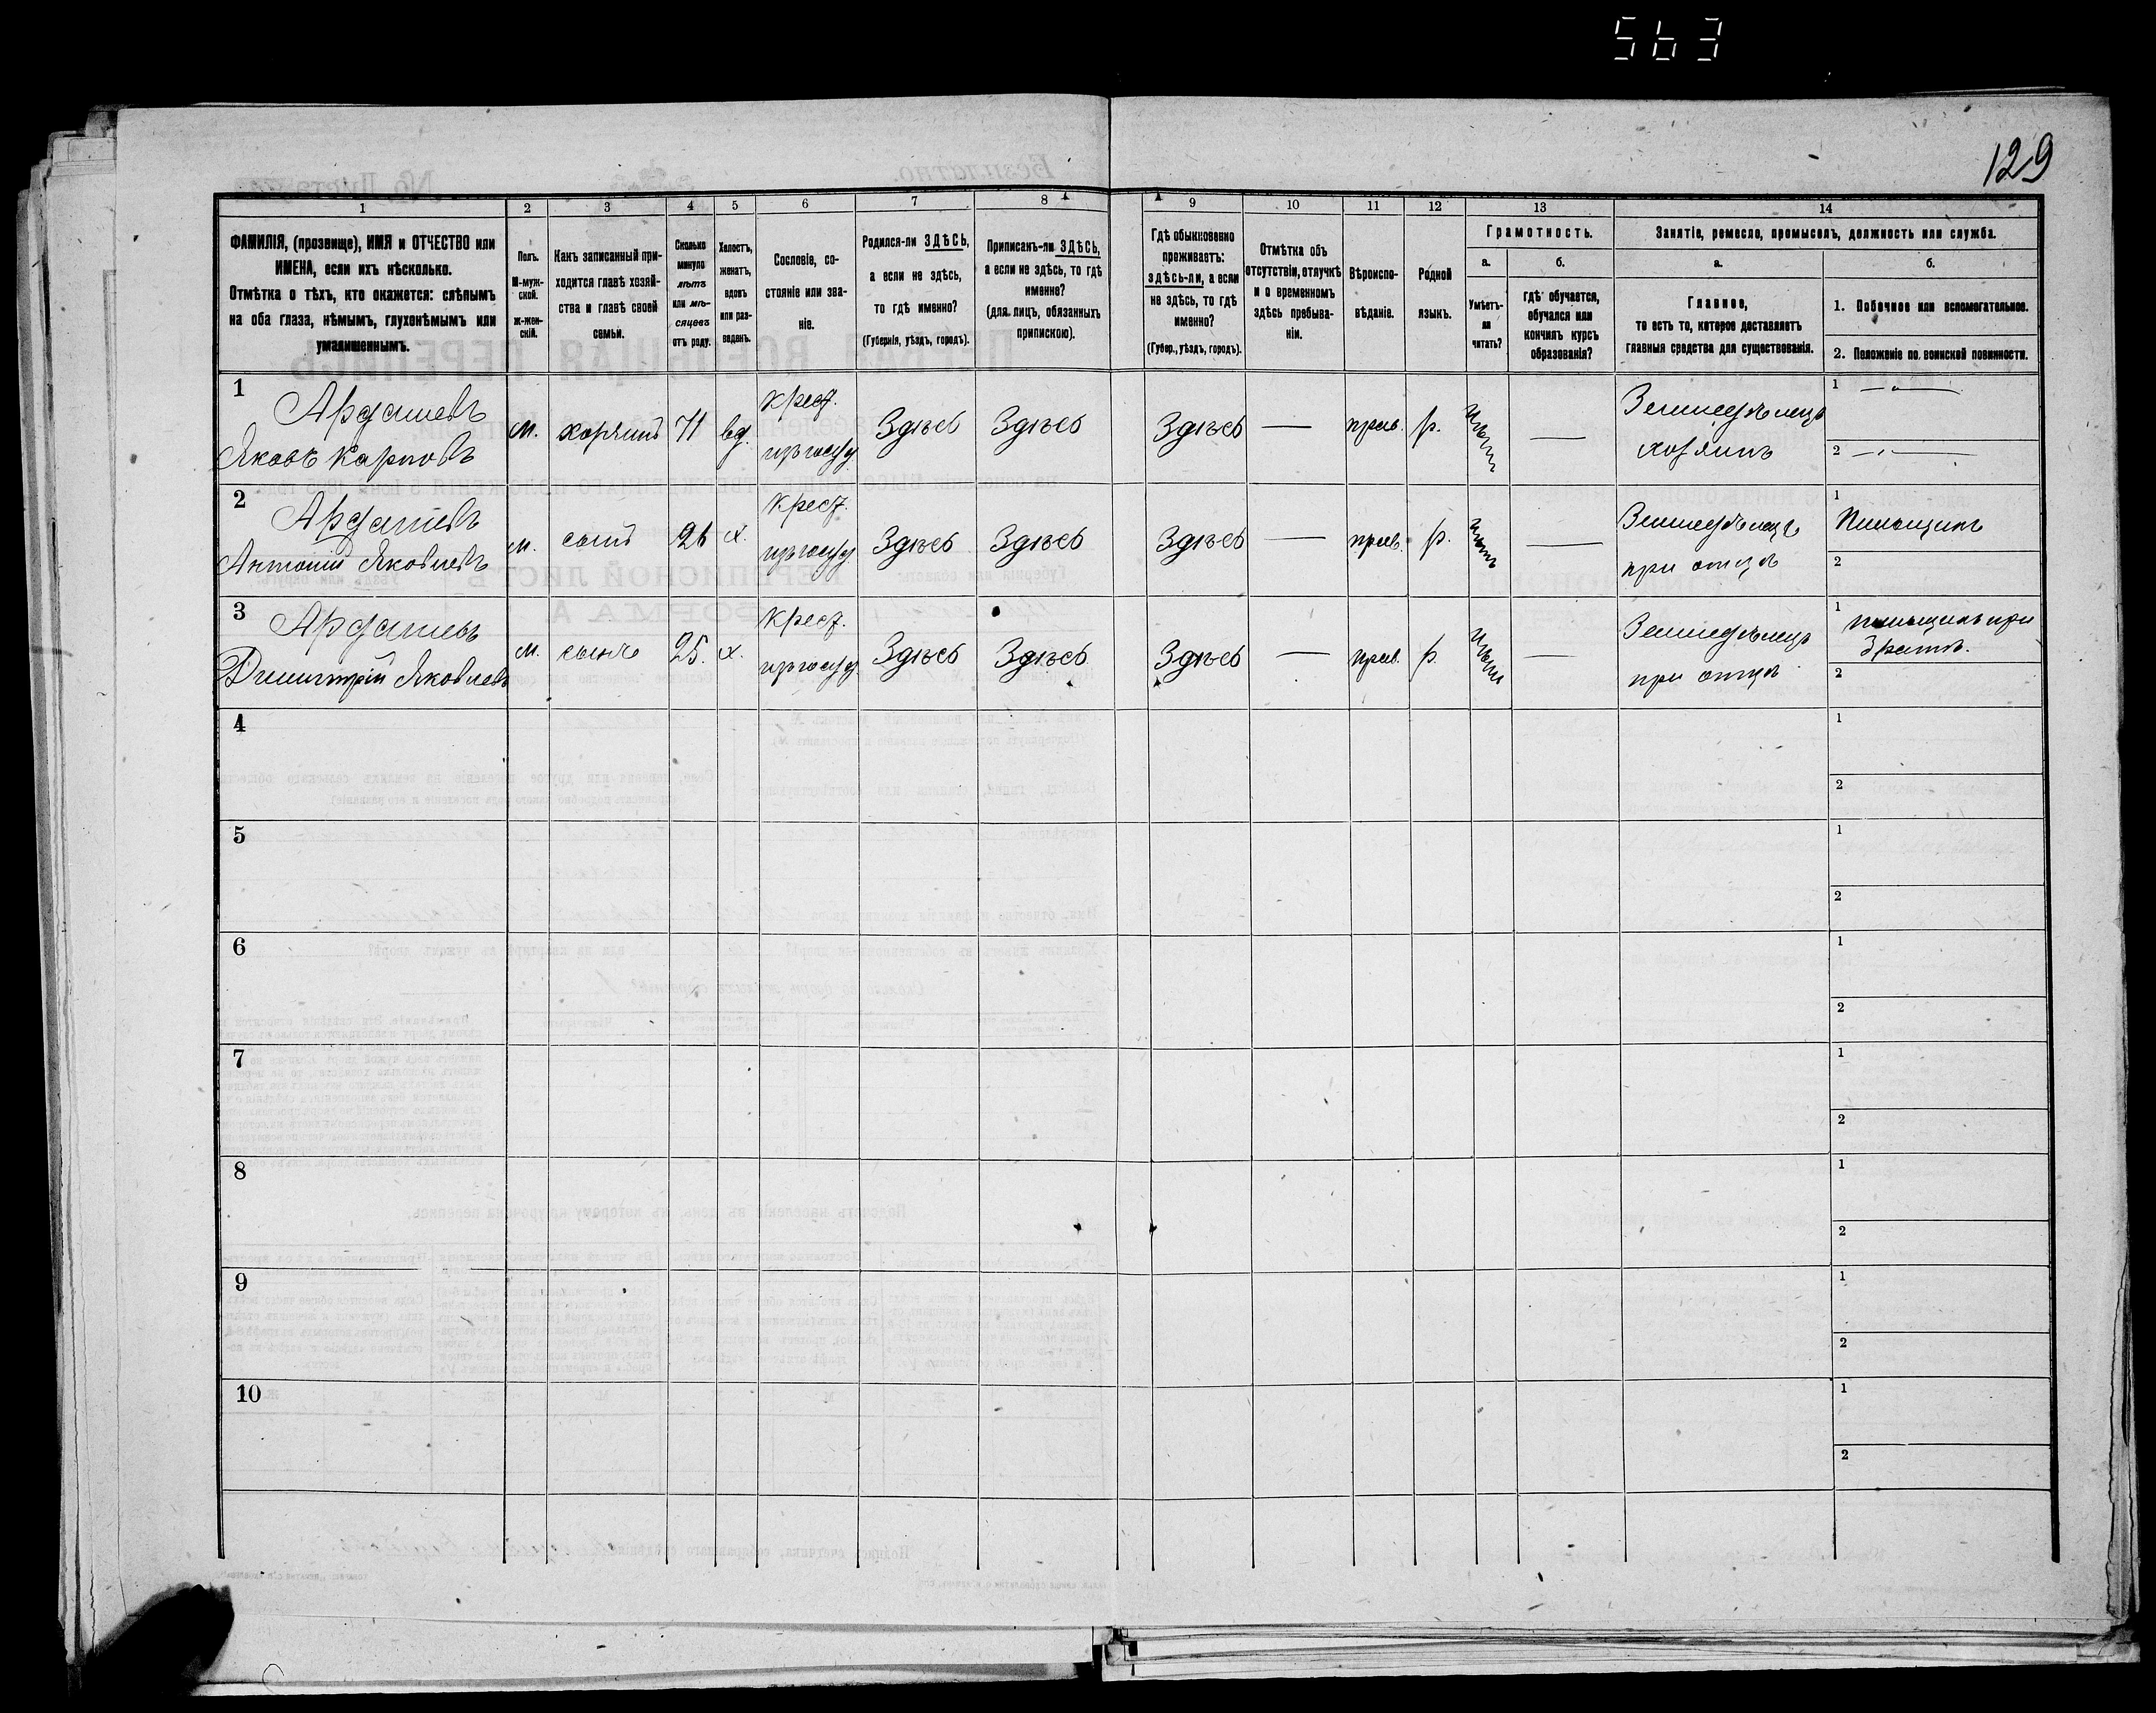 563
129
1
2
3
4
5
6
7
8
9
10
11
12
13
14
ФАМИЛІЯ, (прозвище), ИМЯ и ОТЧЕСТВО или
ИМЕНА, если ихъ нѣсколько.
Отмѣтка о тѣхъ, кто окажется: слѣпымъ
на оба глаза, нѣмымъ, глухонѣмымъ или
умалишеннымъ.
Полъ.
М-муж-
ской.
ж-жен-
скій.
Какъ записанный при-
ходится главѣ хозяй-
ства и главѣ своей
семьи.
Сколько
минуло
лѣтъ
или мѣ-
сяцевъ
отъ роду.
Холостъ,
женатъ,
вдовъ
или раз-
веденъ.
Сословіе, со-
стояніе или зва-
ніе.
Родился-ли ЗДѢСЬ,
а если не здѣсь,
то гдѣ именно?
(Губернія, уѣздъ, городъ).
Приписанъ-ли ЗДѢСЬ,
а если не здѣсь, то гдѣ
именно?
(для лицъ, обязанныхъ
припискою).
Гдѣ обыкновенно
проживаетъ:
здѣсь-ли, а если
не здѣсь, то гдѣ
именно?
(Губер., уѣздъ, городъ).
Отмѣтка объ
отсутствіи, отлучкѣ
и о временномъ
здѣсь пребыва-
ніи.
Вѣроиспо-
вѣданіе.
Родной
языкъ.
Грамотность.
а.
б.
Умѣетъ-
ли
читать?
гдѣ обучается,
обучался или
кончилъ курсъ
образованія?
Занятіе, ремесло, промыселъ, должность или служба.
а.
б.
Главное,
то есть то, которое доставляетъ
главныя средства для существованія.
1. Побочное или вспомогательное.
2. Положеніе по воинской повинности.
1
Ардашевъ
Яковъ Карповъ
м.
хозяинъ
71
вд.
Крест.
изъ госуд.
Здѣсь
Здѣсь
Здѣсь
—
прав.
р.
Нѣтъ
—
Земледѣлецъ
хозяинъ
1 — " —
2 — " —
2
Ардашевъ
Антоній Яковлевъ
м.
сынъ
26
х.
Крест.
изъ госуд.
Здѣсь
Здѣсь
Здѣсь
—
прав.
р.
Нѣтъ
—
Земледѣлецъ
при отцѣ
1
Пильщикъ
2
3
Ардашевъ
Димитрій Яковлевъ
м.
сынъ
25.
х.
Крест.
изъ госуд.
Здѣсь
Здѣсь
Здѣсь
—
прав.
р.
Нѣтъ
—
Земледѣлецъ
при отцѣ
1
пильщикъ при
братѣ.
2
4
1
2
5
1
2
6
1
2
7
1
2
8
1
2
9
1
2
10
1
2